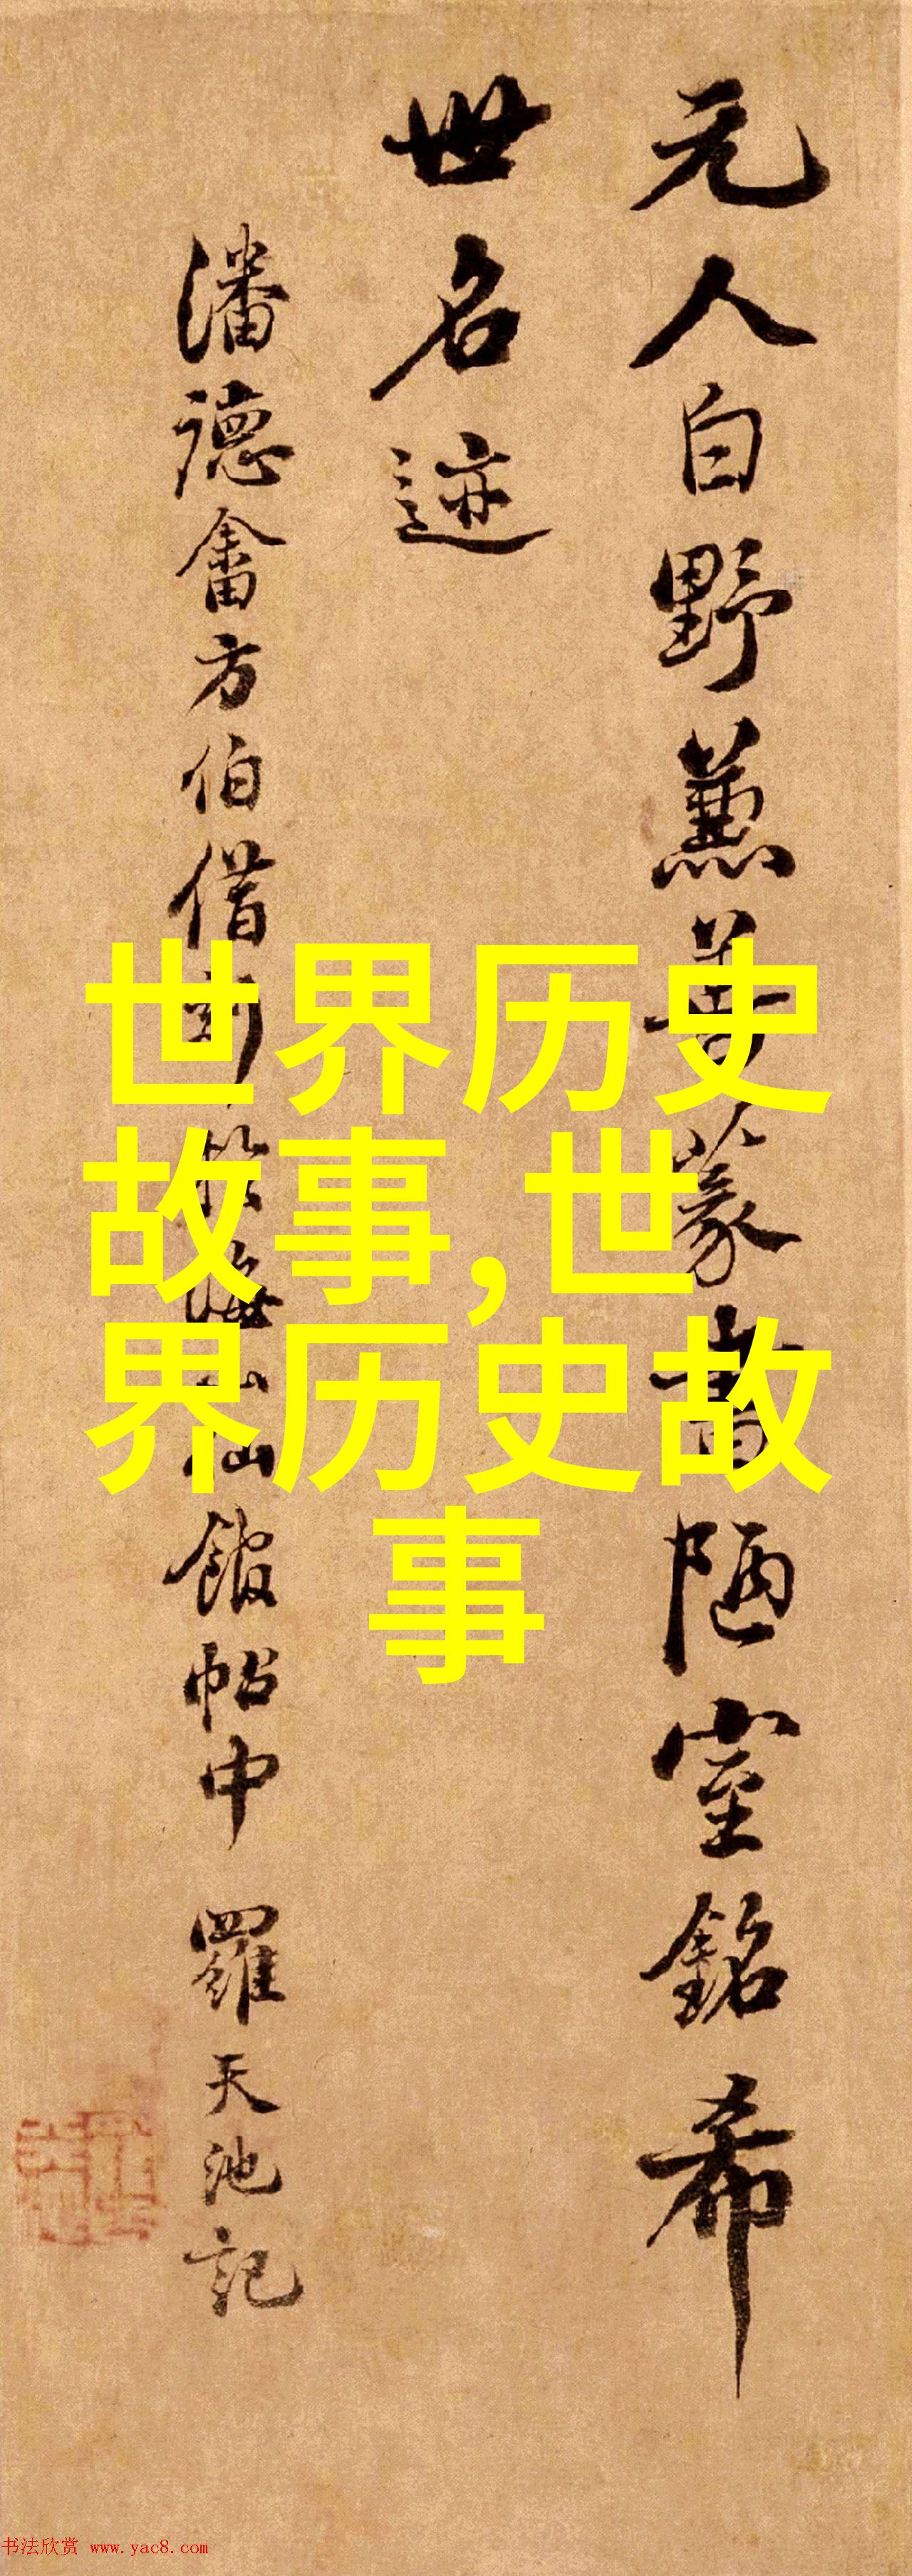 元人白野兼善篆書陋室銘希
世名迹
潘德畬方伯借刻於海山仙館帖中 羅天池記
世界历史
故事,世
界历史故
事
书法欣赏 www.yac8.com